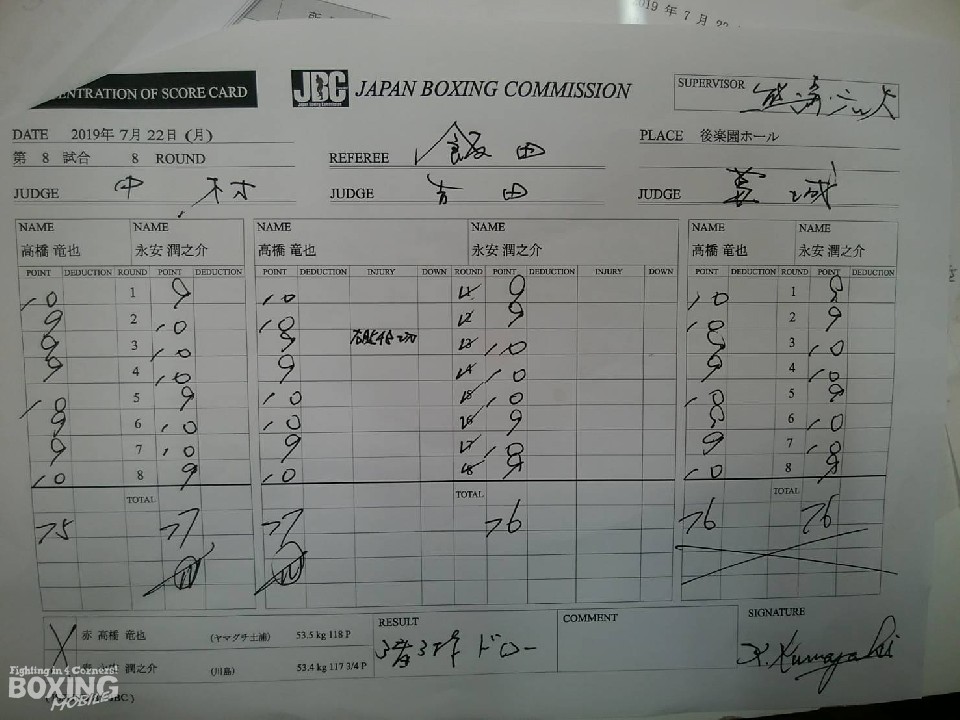 2019年7月22
ENTRATION OF SCORE CARD
JBC JAPAN BOXING COMMISSION
SUPERVISOR
DATE 2019年 7月 22日 (月)
PLACE 後楽園ホール
第 8 試合 8 ROUND
REFEREE 飯田
JUDGE 中村 JUDGE 吉田 JUDGE 葛城
NAME NAME NAME NAME NAME NAME
高橋 竜也 永安 潤之介 高橋 竜也 永安 潤之介 高橋 竜也 永安 潤之介
POINT DEDUCTION ROUND POINT DEDUCTION POINT DEDUCTION INJURY DOWN ROUND POINT DEDUCTION INJURY DOWN POINT DEDUCTION ROUND POINT DEDUCTION
10 1 9 10 1 9 10 1 9
9 2 10 10 2 9 10 2 9
9 3 10 9 3 10 9 3 10
9 4 10 9 4 10 9 4 10
10 5 9 10 5 10 10 5 9
9 6 10 10 6 9 9 6 10
9 7 10 9 7 10 9 7 10
10 8 9 10 8 9 10 8 9
TOTAL TOTAL TOTAL
75 77 77 76 76 76
赤 高橋 竜也 (ヤマグチ土浦) 53.5 kg 118 P
潤之介 (川島) 53.4 kg 117 3/4 P
RESULT
ドロー
COMMENT
SIGNATURE
K. Kumagaki
Fighting in 4 Corners!
BOXING
MOBILE